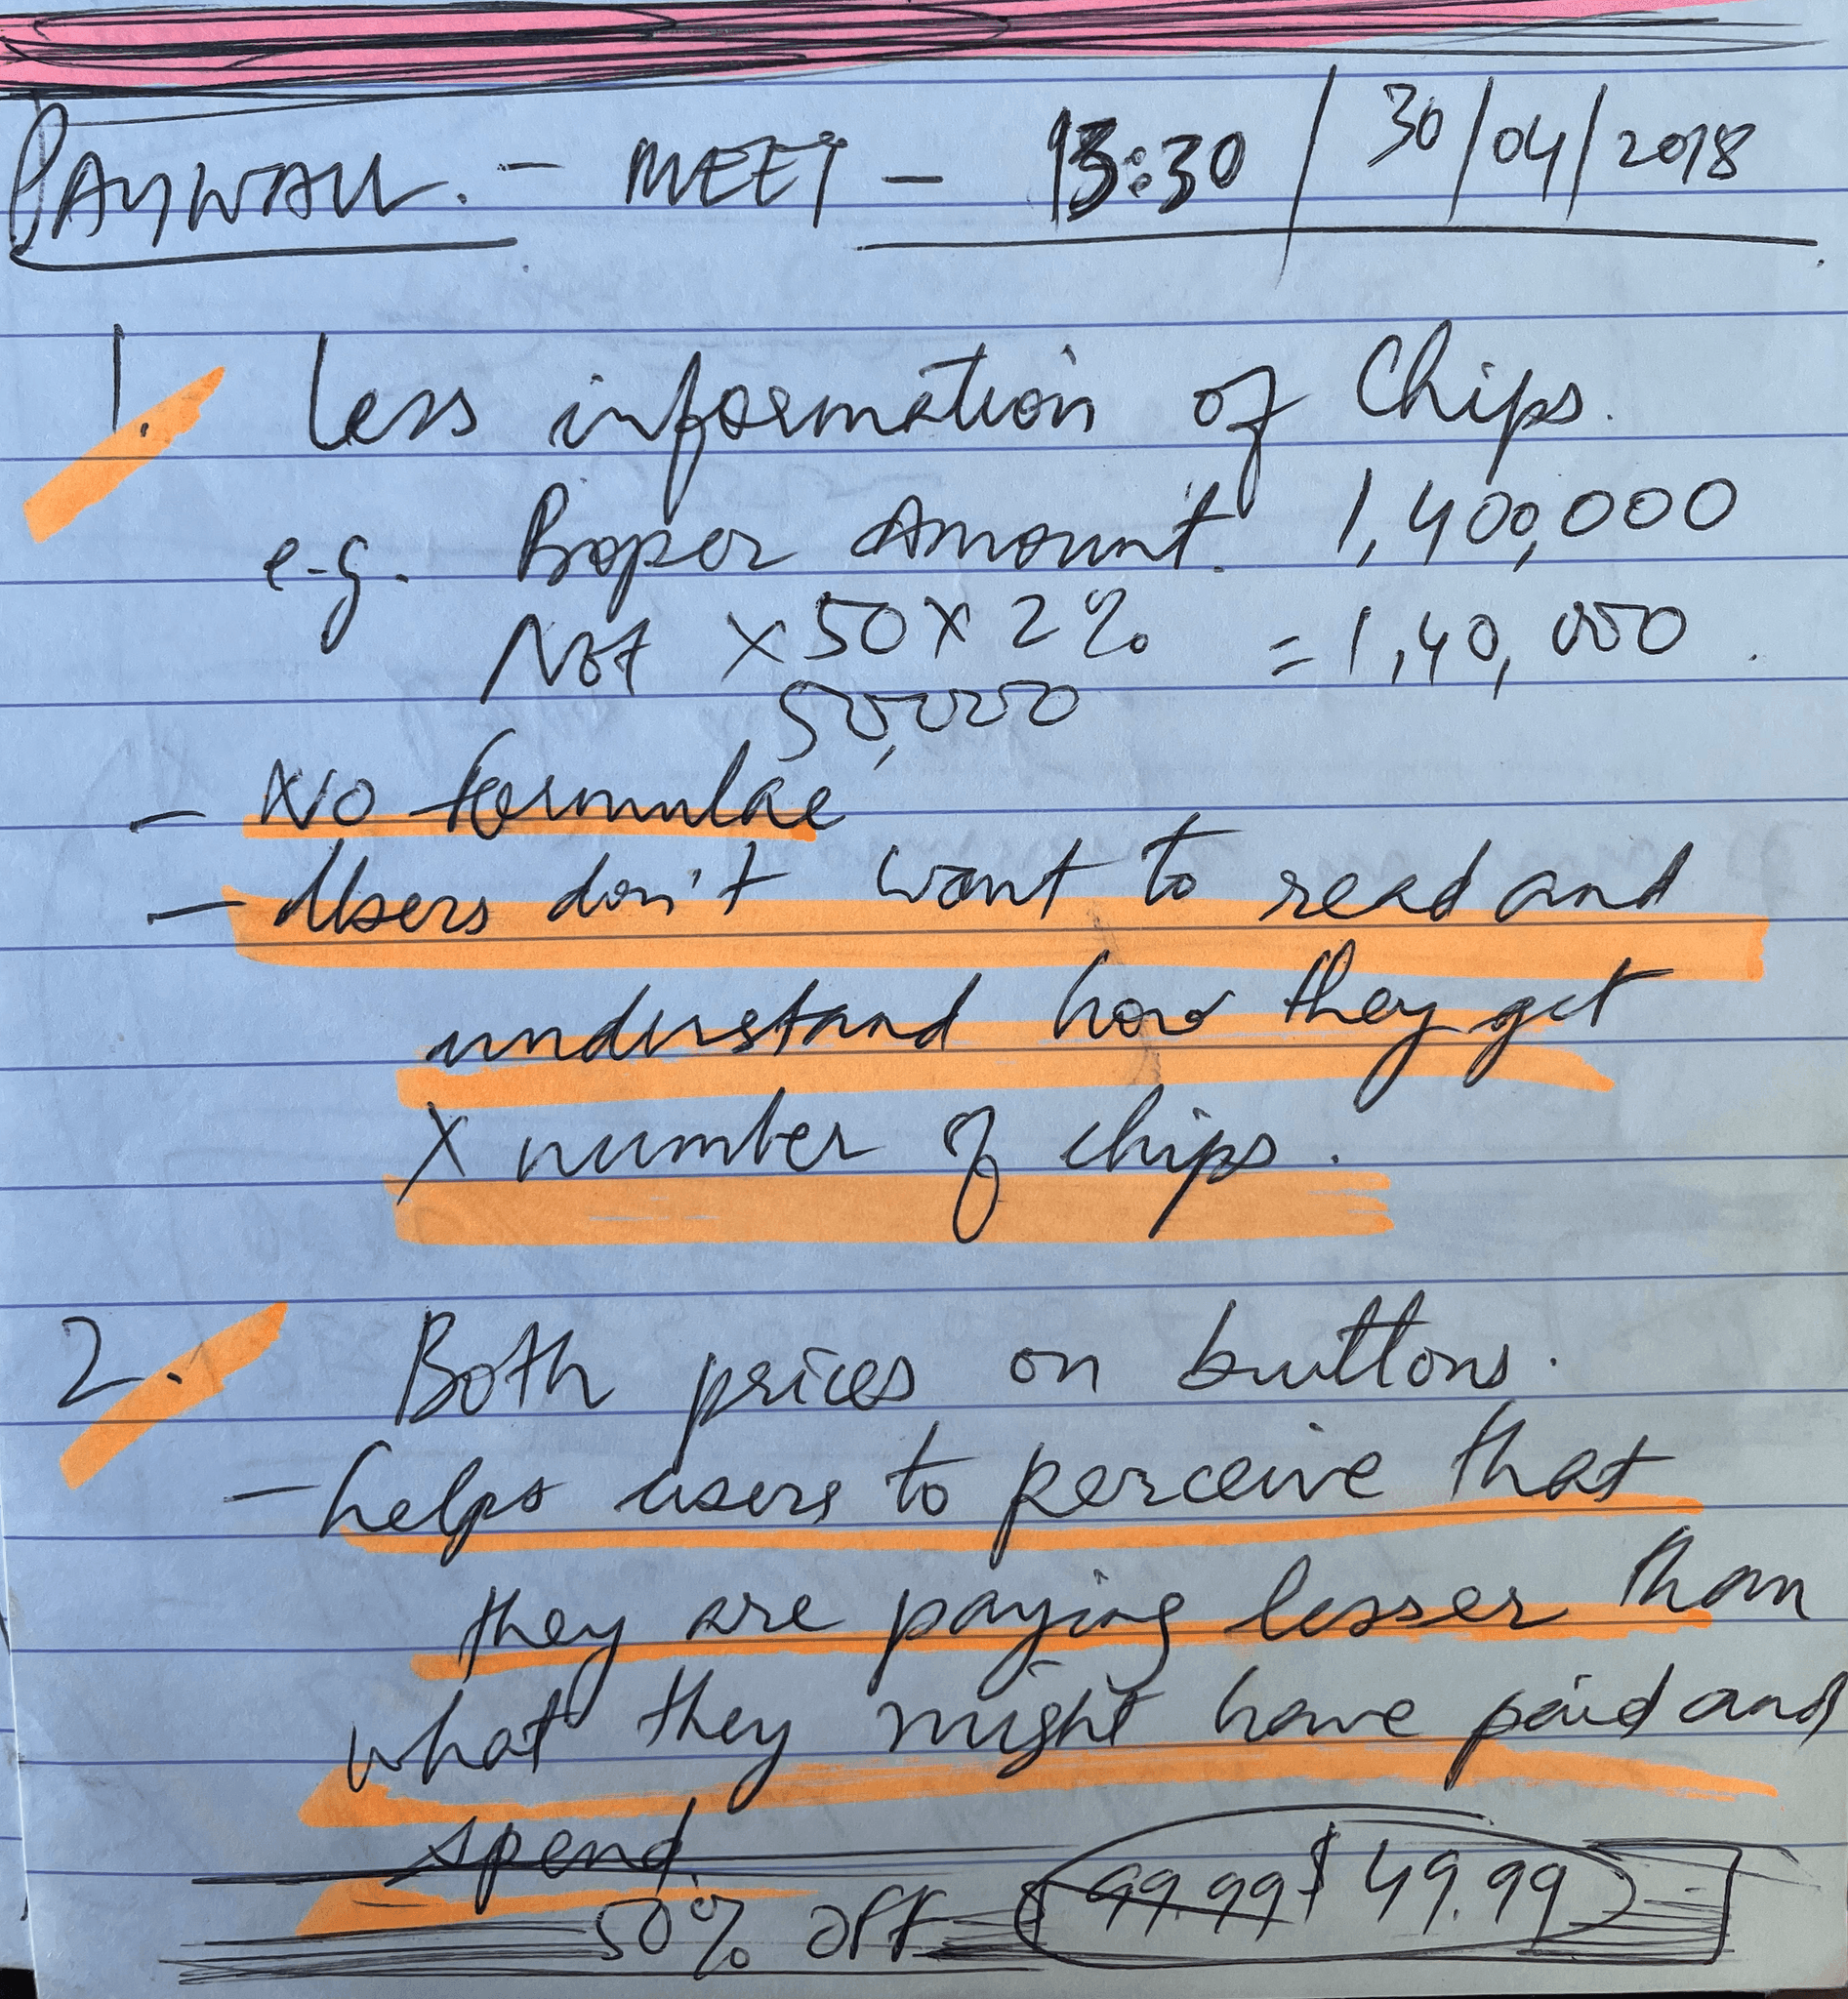 PAYWALL. - MEET - 13:30 / 30/04/2018
1. Less information of Chips.
e.g. Proper Amount. 1,400,000
Not x 50 x 2% = 1,40,000.
50,000
- No formulae
- Users don't want to read and
understand how they get
X number of chips.
2. Both prices on buttons.
- helps users to perceive that
they are paying lesser than
what they might have paid and
spend.
50% off 99.99 $ 49.99